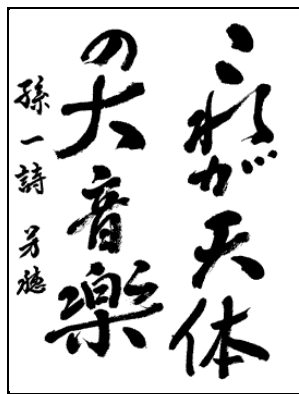 これが天体
の大音楽
孫一詩 芳穂